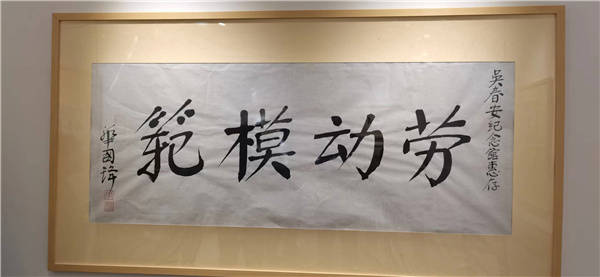 吴春安纪念馆惠存
劳动模範
華国锋